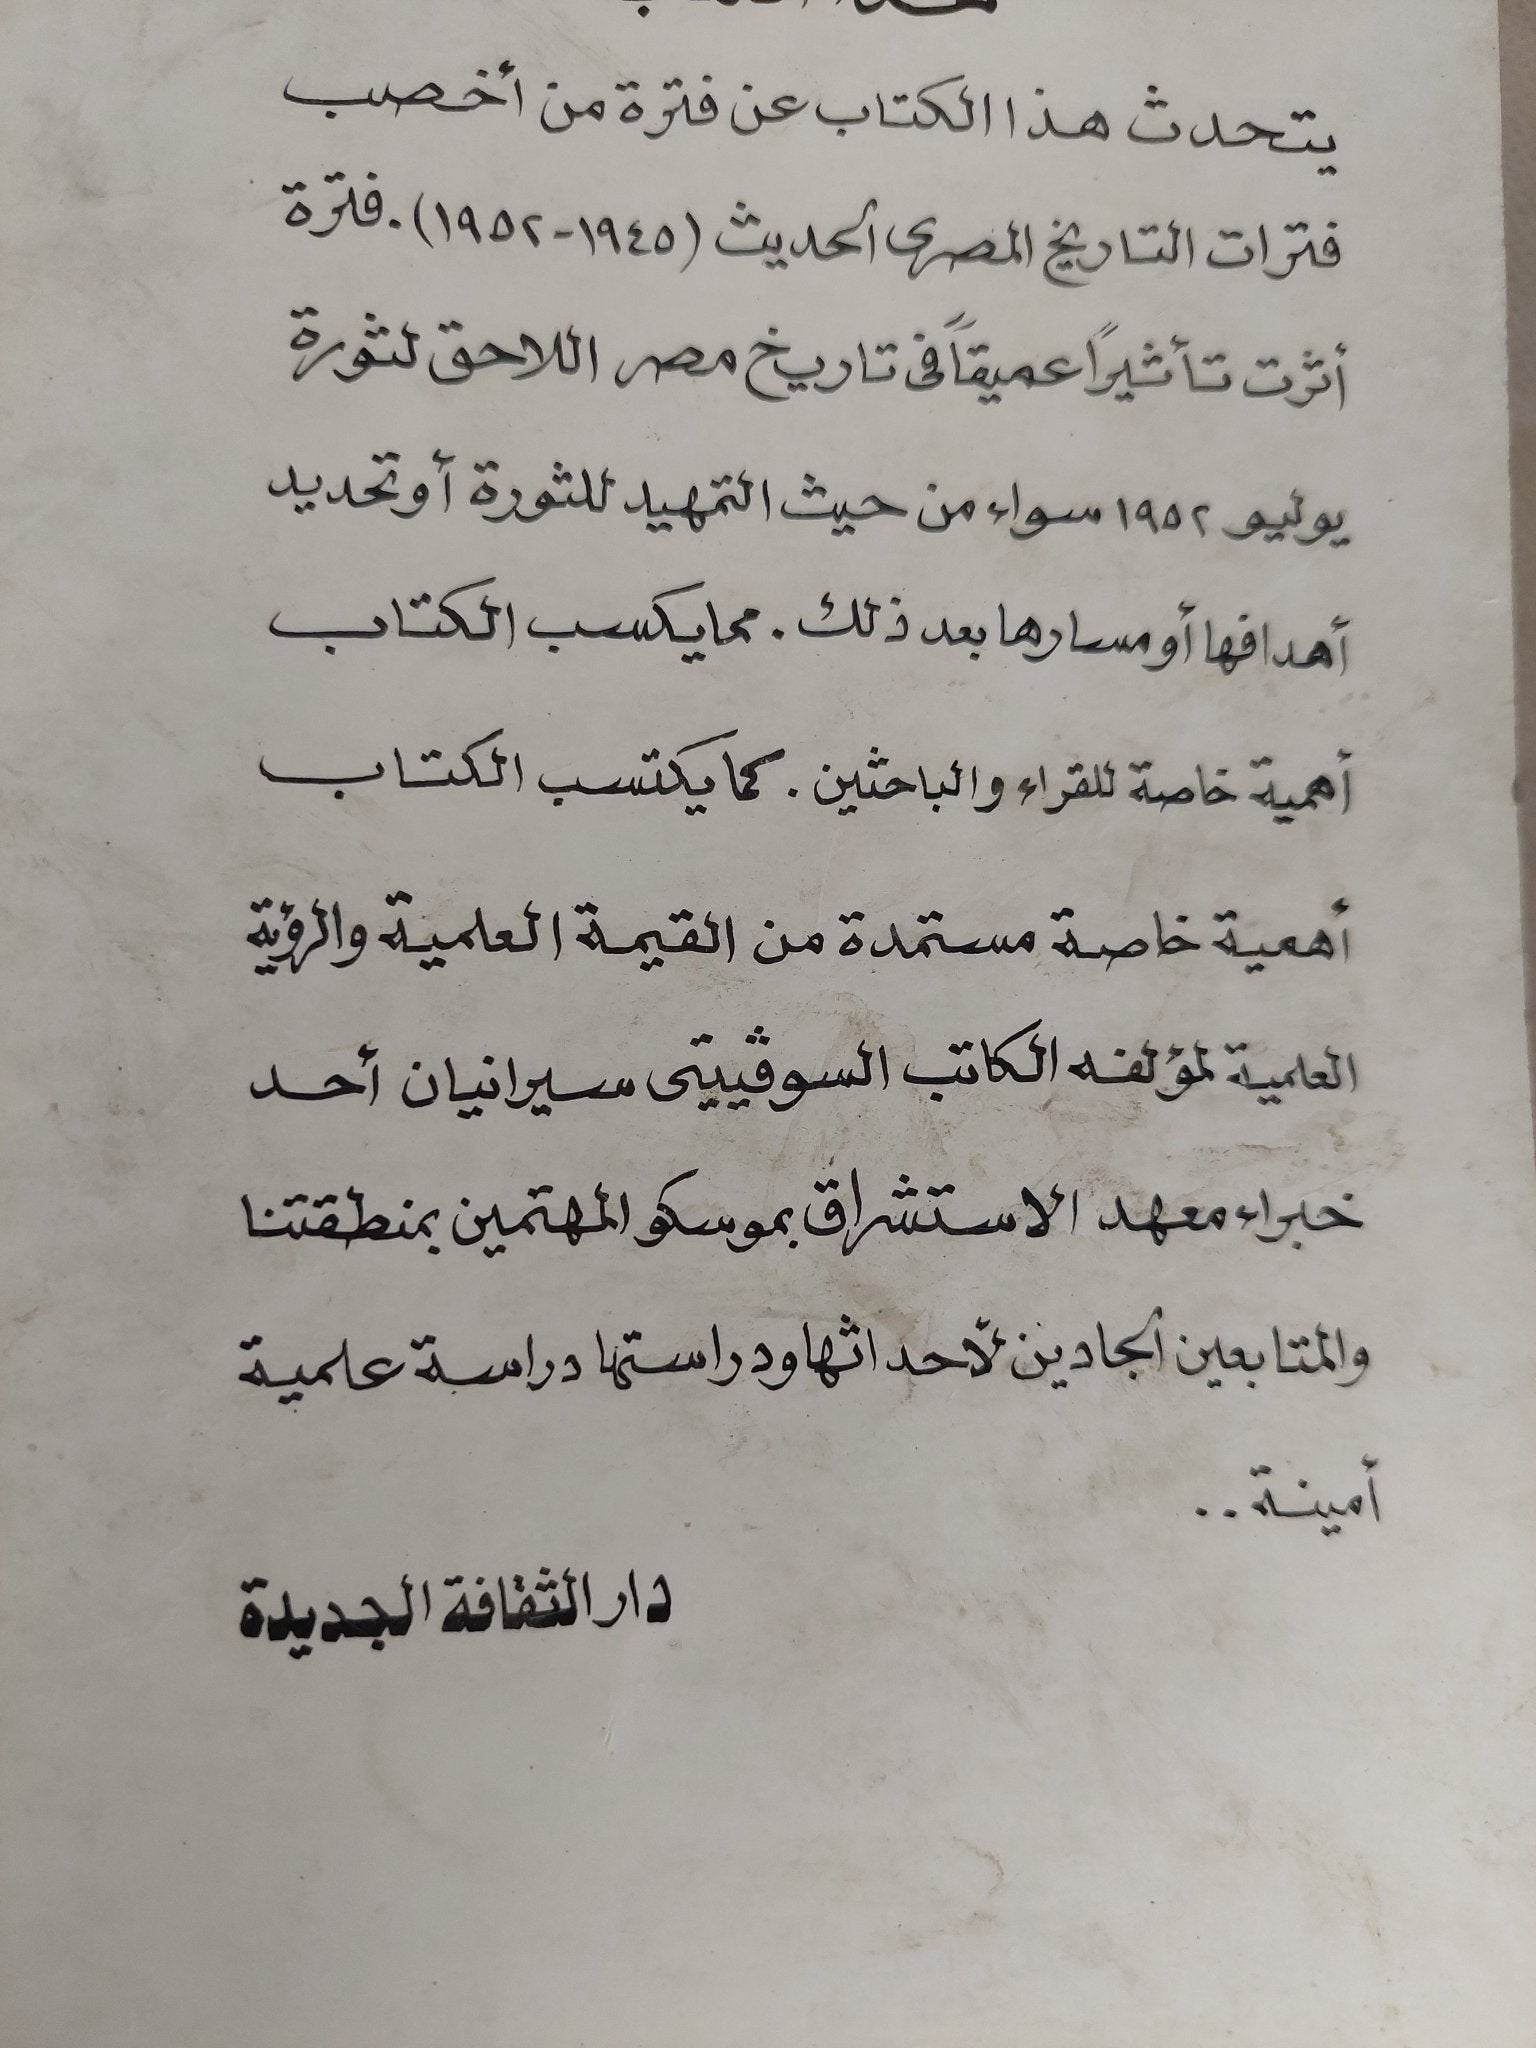 يتحدث هذا الكتاب عن فترة من أخصب
فترات التاريخ المصرى الحديث (١٩٤٥-١٩٥٢). فترة
أثرت تأثيرًا عميقاً فى تاريخ مصر اللاحق لثورة
يوليو ١٩٥٢ سواء من حيث التمهيد للثورة أو تحديد
أهدافها أو مسارها بعد ذلك. مما يكسب الكتاب
أهمية خاصة للقراء والباحثين. كما يكتسب الكتاب
أهمية خاصة مستمدة من القيمة العلمية والرؤية
العلمية لمؤلفه الكاتب السوڤييتى سيرانيان أحد
خبراء معهد الاستشراق بموسكو المهتمين بمنطقتنا
والمتابعين الجادين لأحداثها ودراستها دراسة علمية
أمينة..
دار الثقافة الجديدة